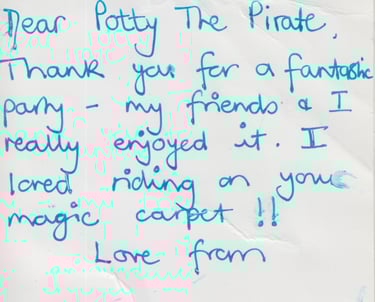 Dear Potty The Pirate,
Thank you for a fantastic
party - my friends & I
really enjoyed it. I
loved riding on your
magic carpet !!
Love from